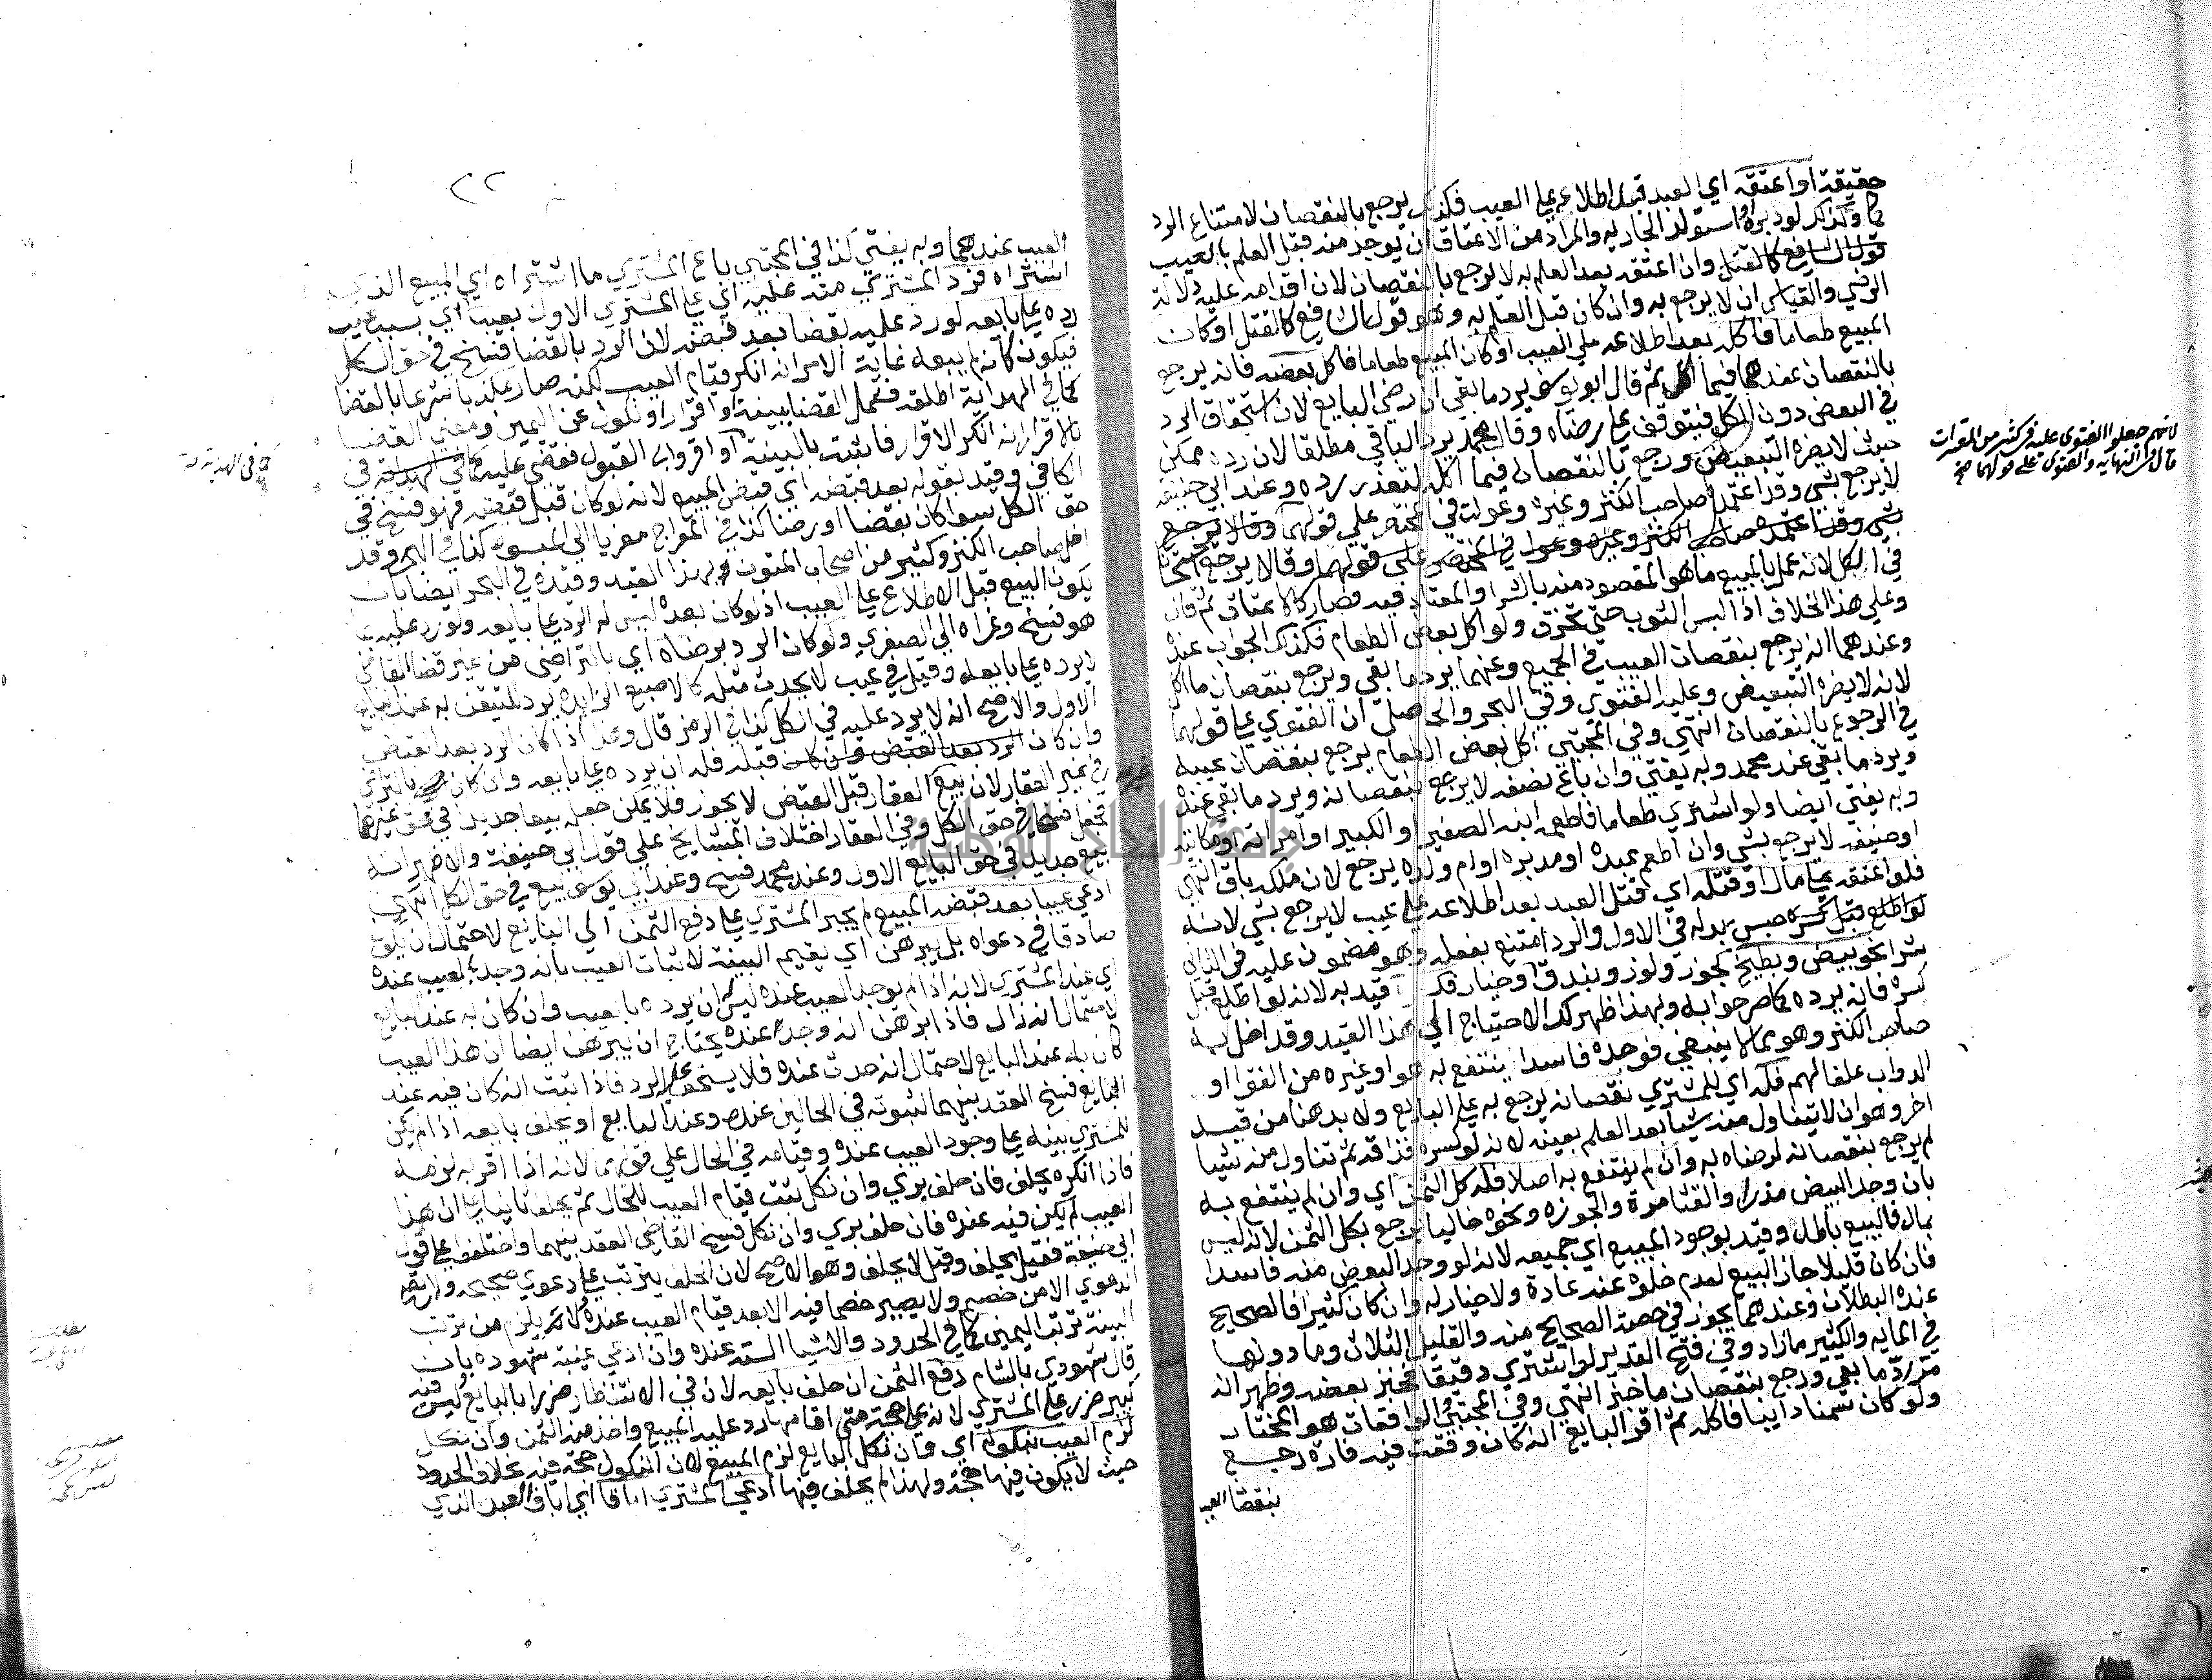 حقيقة او اعتقه اي العبد قبل اطلاعه علي العيب فكذلك يرجع بالنقصان لامتناع الرد
كما وكذلك لو دبره او استولد الجارية والمراد من الاعتاق ان يوجد منه قبل العلم بالعيب
كالقتل وان اعتقه بعد العلم به لا يرجع بالنقصان لان اقدامه عليه دلالة
الرضي والقياس ان لا يرجع به وان كان قبل العلم به وهو قول الشافعي كالقتل او كان
المبيع طعاما فاكله بعد اطلاعه علي العيب او كان المبيع طعاما فاكل بعضه فانه يرجع
بالنقصان عندهما فيما اكل ثم قال ابو يوسف يرد ما بقي ان رضي البايع لان استحقاق الرد
في البعض دون الكل فيتوقف علي رضاه وقال محمد يرد الباقي مطلقا لان رده ممكن
حيث لا يضره التبعيض ورجع بالنقصان فيما اكل لتعذر رده وعند ابي حنيفة
لا يرجع بشي وقد اعتمده صاحب الكنز وغيره وعولت في المختصر علي قولهما وقالا يرجع
بشي وقد اعتمده صاحب الكنز وغيره وعول في المختصر علي قولهما وقالا يرجع استحسانا
في الكل لانه عمل بالمبيع ما هو المقصود منه بالشرا والمعتاد فيه فصار كالاعتاق ثم قال
وعلي هذا الخلاف اذا لبس الثوب حتي تخرق ولو اكل بعض الطعام فكذلك الجواب عنده
وعندهما انه يرجع بنقصان العيب في الجميع وعنهما يرد ما بقي ويرجع بنقصان ما اكل
لانه لا يضره التبعيض وعليه الفتوي وفي البحر والحاصل ان الفتوي علي قولهما
في الرجوع بالنقصان انتهي وفي المجتبي اكل بعض الطعام يرجع بنقصان عيبه
ويرد ما بقي عند محمد وبه يفتي وان باع نصفه لا يرجع بنقصانه ويرد ما بقي عنده
وبه يفتي ايضا ولو اشتري طعاما فاطعمه ابنه الصغير او الكبير او امراته او مكاتبه
او ضيفه لا يرجع بشي وان اطعم عبده او مدبره او ام ولده يرجع لان ملكه باق انتهي
فلو اعتقه علي مال او قتله اي قتل العبد بعد اطلاعه علي عيب لا يرجع بشي لانه
لو اطلع قبل كسره حبس بدله في الاول والرد امتنع بفعله وهو مضمون عليه في الثاني
شرا نحو بيض وبطيخ كجوز ولوز وبندق وخيار فكسره قيد به لانه لو اطلع قبل
كسره فانه يرده كما صرحوا به وبهذا ظهر لك الاحتياج الي هذا القيد وقد اخل به
صاحب الكنز وهو مما لا ينبغي فوجده فاسدا ينتفع به هو او غيره من الفقرا او
الدواب علفا لهم فله اي للمشتري نقصانه يرجع به علي البايع ولا بد هنا من قيد
اخر وهو ان لا يتناول منه شيا بعد العلم بعيبه لانه لو كسره فذاقه ثم تناول منه شيا
لم يرجع بنقصانه لرضاه به وان لم ينتفع به اصلا فله كل الثمن اي وان لم ينتفع به
بان وجد البيض مذرا والقثا مرة والجوزه ونحوه خاليا يرجع بكل الثمن لانه ليس
بمال فالبيع باطل وقيد بوجود المبيع اي جميعه لانه لو وجد البعض منه فاسدا
فان كان قليلا جاز البيع لعدم خلوه عنه عادة ولا خيار له وان كان كثيرا فالصحيح
عنده البطلان وعندهما يجوز في حصة الصحيح منه والقليل الثلاث وما دونها
في المايه والكثير ما زاد وفي فتح القدير لو اشتري دقيقا فخبز بعضه وظهر انه
مر رد ما بقي ورجع بنقصان ما خبز انتهي وفي المجتبي والواقعات هو المختار
ولو كان سمنا دايبا فاكله ثم اقر البايع انه كان وقعت فيه فارة رجع
بنقصا العيب
لانهم جعلوا الفتوي عليه في كثير من المعتبرات
قال في النهايه والفتوي علي قولهما صح
٢٢
العيب عندهما وبه يفتي كذا في المجتبي باع المشتري ما اشتراه اي المبيع الذي
اشتراه فرد المشتري منه عليه اي علي المشتري الاول بعيب اي بسبب عيب
رده علي بايعه لو رد عليه بقضا بعد قبضه لان الرد بالقضا فسخ في حق الكل
فيكون كانه لم يبعه غاية الامر انه انكر قيام العيب لكنه صار مكذبا شرعا بالقضا
كما في الهداية اطلقه فشمل القضا ببينة او اقرار او نكول عن اليمين ومعني القضا
بالاقرار انه انكر الاقرار فاثبت بالبينة او اقر وابي القبول فقضي عليه كما في الهداية في
الكافي وقيد بقوله بعد قبضه اي قبض المبيع لانه لو كان قبل قبضه فهو فسخ في
حق الكل سوا كان بقضا او رضا كذا في المعراج معزيا الي المبسوط كذا في البحر وقد
اخل صاحب الكنز وكثير من اصحاب المتون بهذا القيد وقيده في البحر ايضا بان
يكون البيع قبل الاطلاع علي العيب اذ لو كان بعده ليس له الرد علي بايعه ولو رد عليه بما
هو فسخ وعزاه الي الصغري ولو كان الرد برضاه اي بالتراضي من غير قضا القاضي
لا يرده علي بايعه وقيل في عيب لا يحدث مثله كالاصبع الزايدة يرد للتيقن به عند البايع
الاول والاصح انه لا يرد عليه في الكل كذا في الرمز قال وهذا اذا كان الرد بعد القبض
وان كان الرد بعد القبض وان كان قبله فله ان يرده علي بايعه وان كان بالتراضي
في غير العقار لان بيع العقار قبل القبض لا يجوز فلا يمكن جعله بيعا جديدا في حق غيرهما
فجعل فسخا في حق الكل وفي العقار اختلاف المشايخ علي قول ابي حنيفة والاظهر انه
بيع جديد في حق البايع الاول وعند محمد فسخ وعند ابي يوسف بيع في حق الكل انتهي
ادعي عيبا بعد قبضه المبيع لم يجبر المشتري علي دفع الثمن الي البايع لاحتمال ان يكون
صادقا في دعواه بل يبرهن اي يقيم البينة لاثبات العيب بانه وجد العيب عنده
اي عند المشتري لانه اذا لم يوجد العيب عنده ليس ان يرده بالعيب وان كان به عند البايع
لاحتمال انه زال فاذا برهن انه وجد عنده يحتاج ان يبرهن ايضا ان هذا العيب
كان به عند البايع لاحتمال انه حدث عنده فلا يستحق الرد فاذا ثبت انه كان فيه عند
البايع فسخ العقد بينهما لثبوته في الحالين عنده وعند البايع او يحلف بايعه اذا لم يكن
للمشتري بينة علي وجود العيب عنده وقيامه في الحال علي قولهما لانه اذا اقر به لزمه
فاذا انكره يحلف فان حلف بري وان نكل ثبت قيام العيب للحال ثم يحلف ثانيا ان هذا
العيب لم يكن فيه عنده فان حلف بري وان نكل فسخ القاضي العقد بينهما واختلفوا علي قول
ابي حنيفة فقيل يحلف وقيل لا يحلف وهو الاصح لان الحلف يترتب علي دعوي صحيحه ولا تصح
الدعوي الا من خصم ولا يصير خصما فيه الا بعد قيام العيب عنده ولا يلزم من ترتب
البينة ترتب اليمين كما في الحدود والاشيا الستة عنده وان ادعي غيبة شهوده بان
قال شهودي بالشام دفع الثمن ان حلف بايعه لان في الانتظار ضررا بالبايع ليس فيه
كبير ضرر علي المشتري لانه علي حجة متي اقامها رد عليه المبيع واخذ منه الثمن وان نكل
لزم العيب بنكوله اي وان نكل البايع لزم المبيع لان النكول حجة فيه بخلاف الحدود
حيث لا يكون فيها حجة ولهذا لم يحلف فيها ادعي المشتري اباقا اي اباق العبد الذي
كما في الهداية